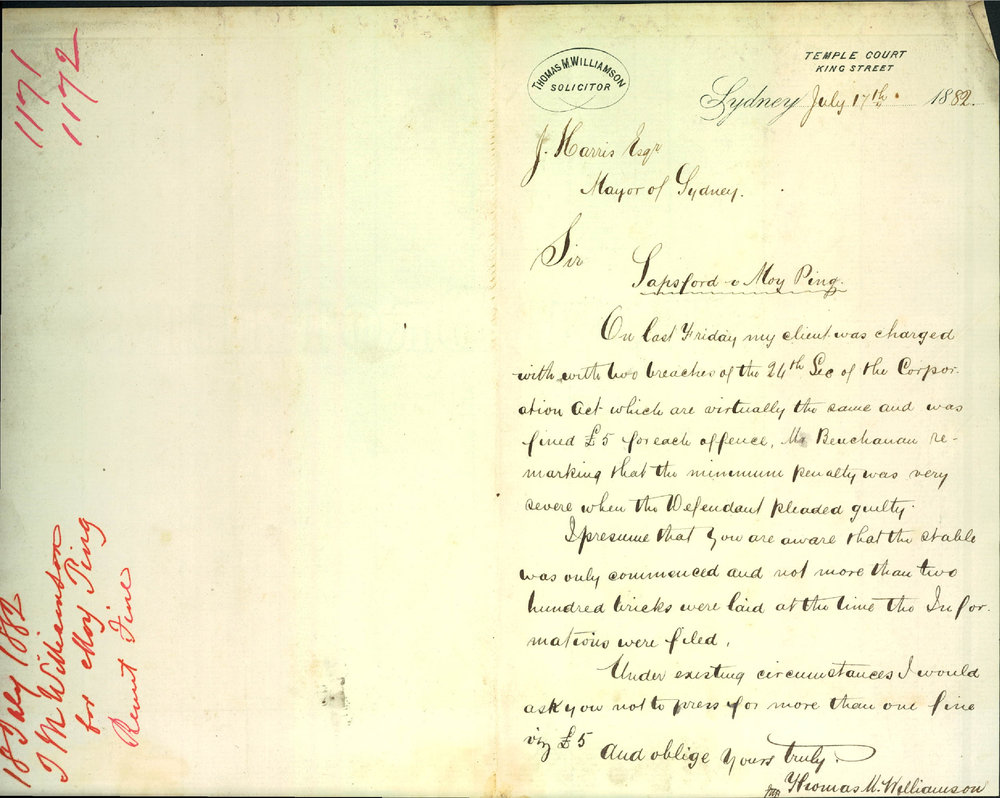 1171
1172
18 July 1882
T M Williamson
for Moy Ping
Remit Fine
THOMAS M. WILLIAMSON
SOLICITOR
TEMPLE COURT
KING STREET
Sydney July 17th 1882.
J. Harris Esqr
Mayor of Sydney.
Sir
Sapsford v Moy Ping.
On last Friday my client was charged
with with two breaches of the 24th Sec of the Corpor-
ation Act which are virtually the same and was
fined £5 for each offence, Mr Beuchanan re-
marking that the minimum penalty was very
severe when the Defendant pleaded guilty.
I presume that you are aware that the stable
was only commenced and not more than two
hundred bricks were laid at the time the Infor-
mations were filed.
Under existing circumstances I would
ask you not to press for more than one fine
viz £5
And oblige Yours truly.
Thomas M. Williamson